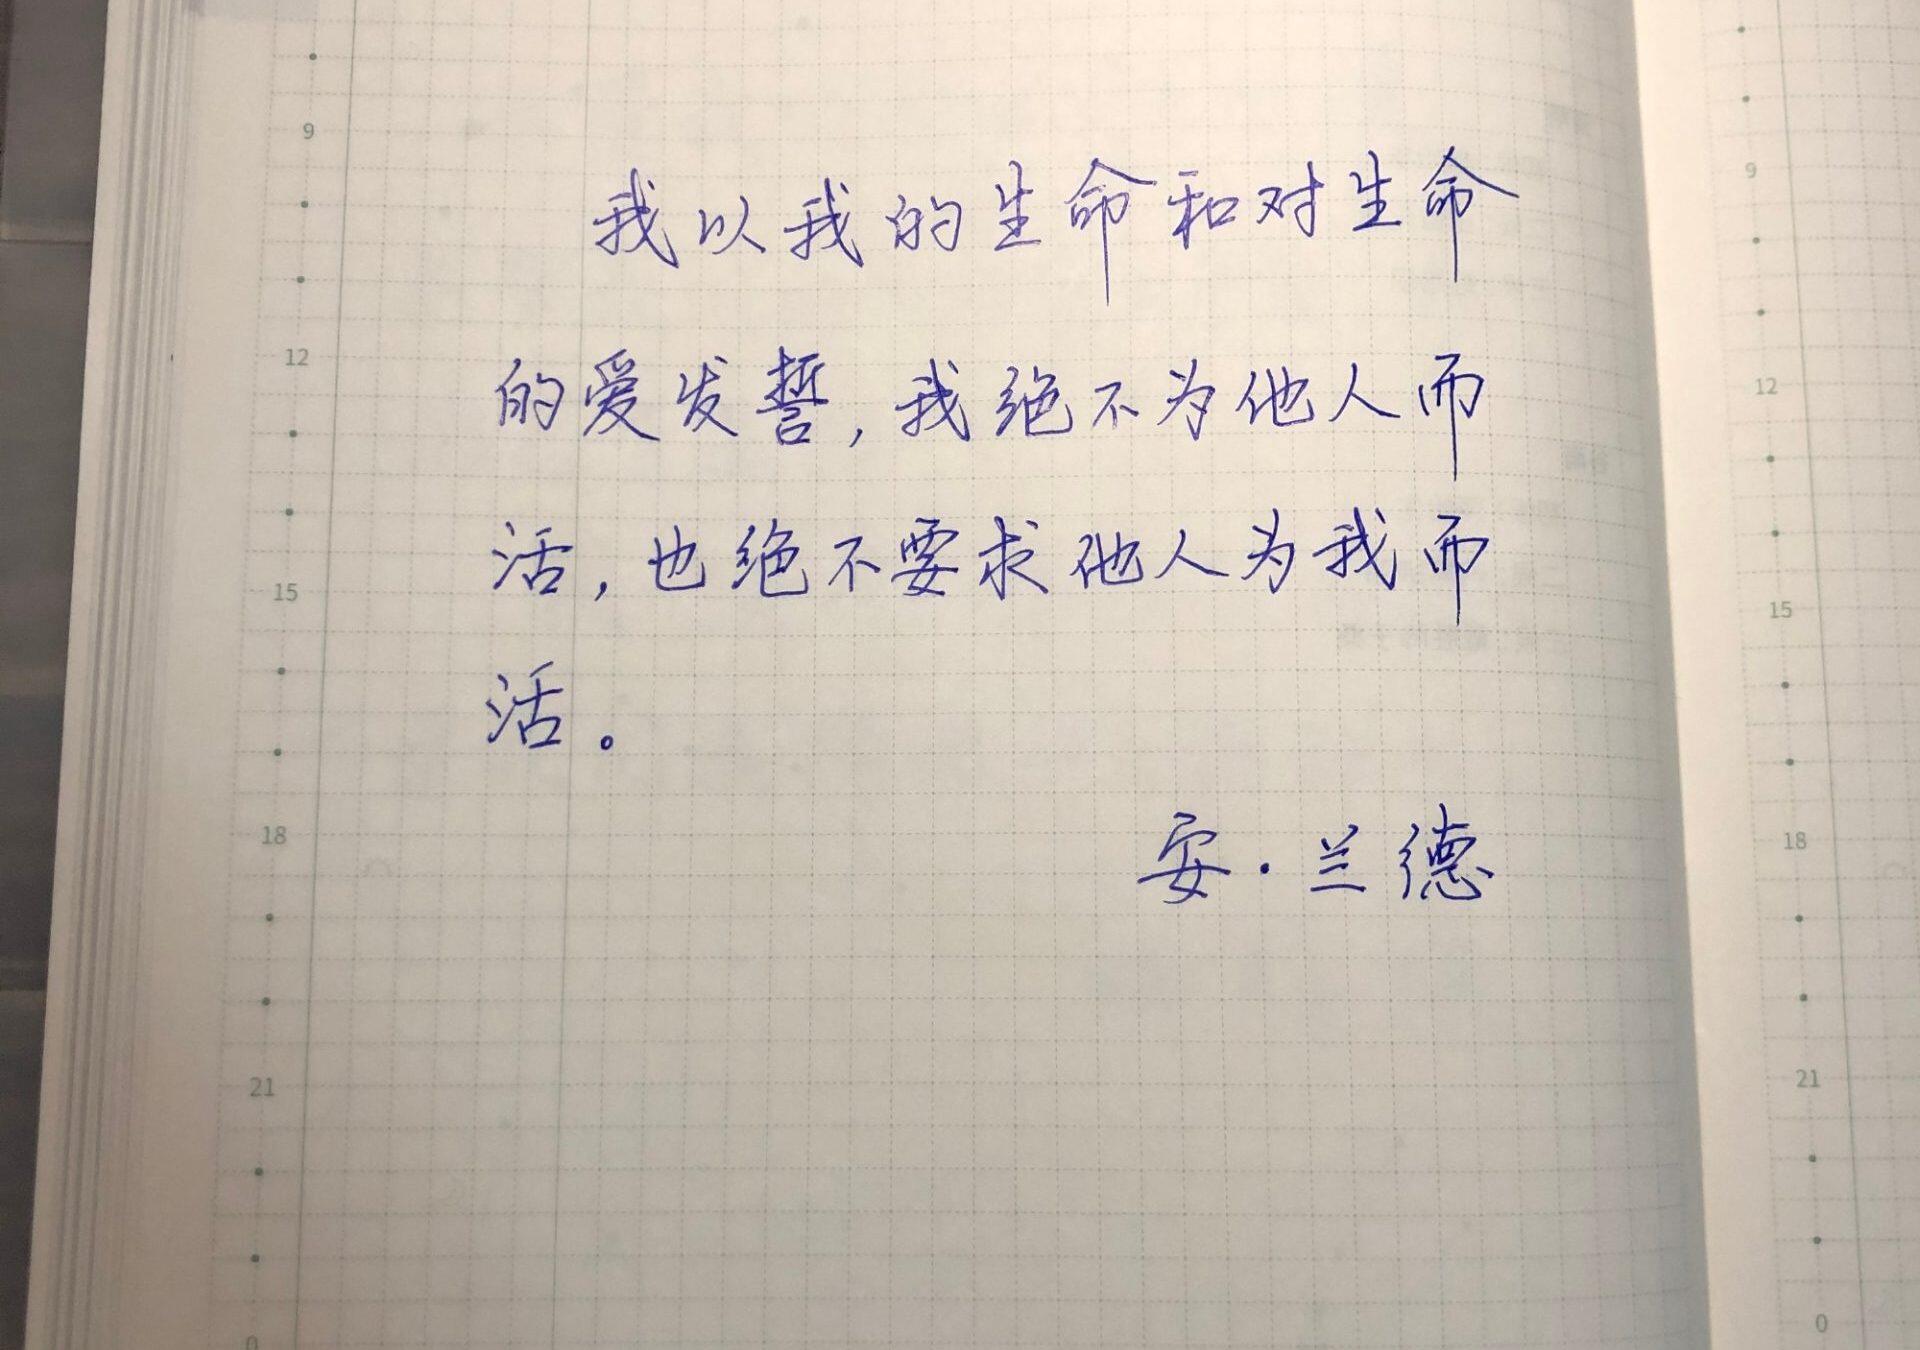 9
我以我的生命和对生命
12
的爱发誓，我绝不为他人而
活，也绝不要求他人为我而
15
活。
18
安·兰德
21
0
9
12
15
18
21
0